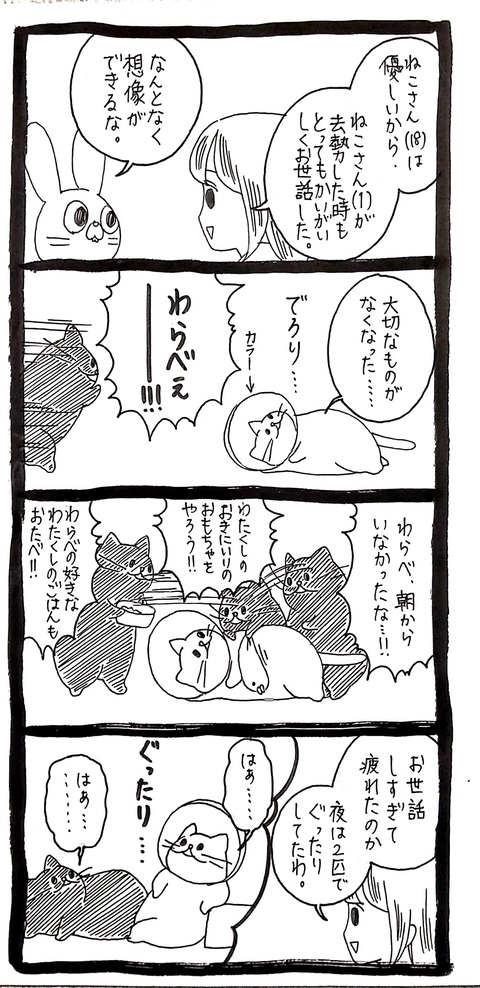 ねこさん(18)は
優しいから、
ねこさん(1)が
去勢した時も
とってもかいがい
しくお世話した。
なんとなく
想像が
できるな。
大切なものが
なくなった……
でろり…
カラー→
わらべぇ
――!!!
わらべ、朝から
いなかったな…!!
わたくしの
おきにいりの
おもちゃを
やろう!!
わらべの好きな
わたくしのごはんも
おたべ!!
お世話
しすぎて
疲れたのか
夜は2匹で
ぐったり
してたわ。
はぁ…
ぐったり…
はぁ…
……